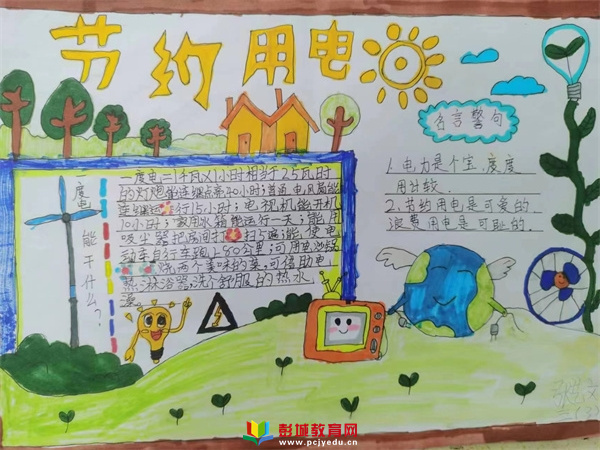 节约用电
一度电能干什么？
一度电=1千瓦×1小时相当于25瓦时
的灯炮能连续点亮40小时;普通电风扇能
连续运行15小时;电视机能开机
10小时;家用冰箱能运行一天;能用
吸尘器把房间打扫5遍;能使电
动车自行车跑上50公里;可用电炒锅
烧两个美味的菜;可借助电
热淋浴器,洗个舒服的热水
澡。
名言警句
1.电力是个宝,度度
用计较.
2.节约用电是可爱的
浪费用电是可耻的.
彭城教育网
www.pcjyedu.cn